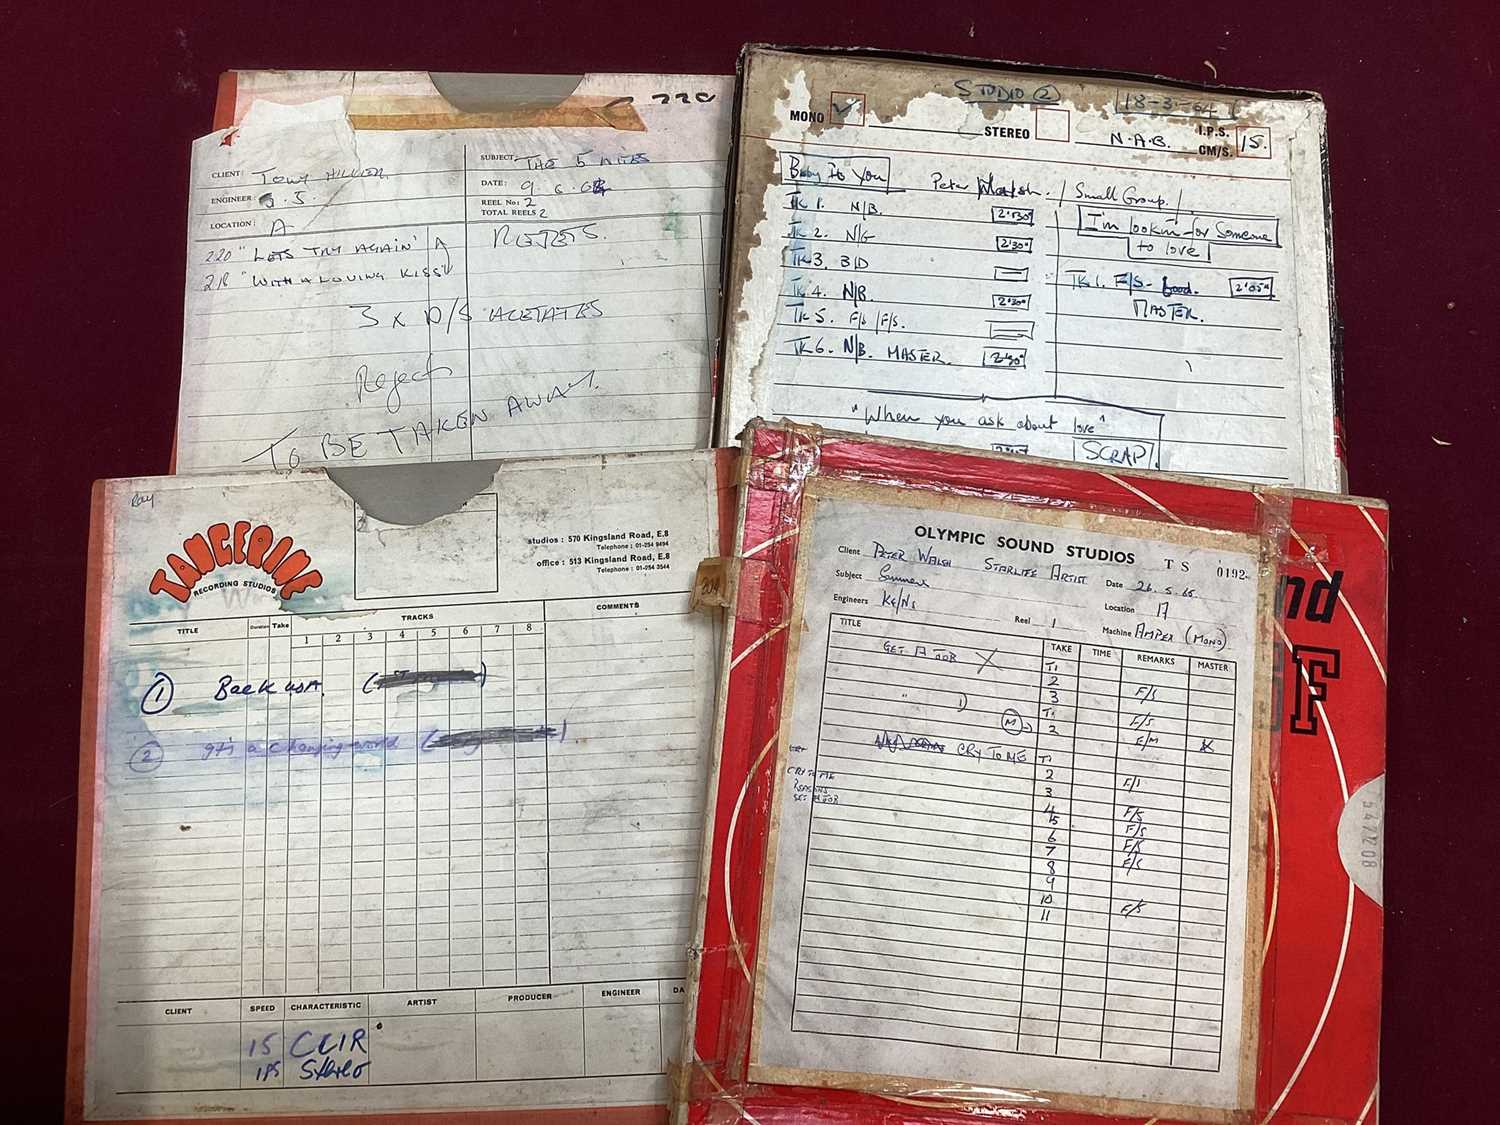 CLIENT: Tony HILLIER
ENGINEER:
LOCATION: A
SUBJECT: THE 5 NITES
DATE: 9.6.
REEL No: 2
TOTAL REELS 2
220 "LETS TRY AGAIN"
218 "WITH A LOVING KISS"
3 x D/S ACETATES
Reject
TO BE TAKEN AWAY.
STUDIO 2
18-3-64
MONO ✓ STEREO N.A.B. I.P.S. 15.
CM/S.
Baby It's You Peter Walsh. / Small Group. /
TK 1. N/B. 2'30"
TK 2. N/G 2'30"
TK 3. B/D
TK 4. N/B. 2'30"
TK 5. F/S / F/S.
TK 6. N/B. MASTER. 2'30"
I'm lookin for Someone
to love
TK 1. F/S - Good. 2'05"
MASTER.
"When you ask about love"
SCRAP.
Ray
TANGERINE
RECORDING STUDIOS
studios : 570 Kingsland Road, E.8
Telephone : 01-254 9494
office : 513 Kingsland Road, E.8
Telephone : 01-254 3544
TITLE Duration Take TRACKS COMMENTS
1 2 3 4 5 6 7 8
1 Back USA.
2 It's a changing world
CLIENT SPEED CHARACTERISTIC ARTIST PRODUCER ENGINEER DA
15 CCIR
IPS Stereo
OLYMPIC SOUND STUDIOS
TS 0192
Client PETER WALSH STARLITE ARTIST Date 26.5.65.
Subject Location 17
Engineers KE/NS Reel 1 Machine AMPEX (MONO)
TITLE TAKE TIME REMARKS MASTER
GET A JOB X T1
2
3 F/S
" T1
M 2 F/S
F/M
CRY TO ME T1
2
3 F/S
4 F/S
5 F/S
6 F/S
7 F/S
8
9
10 F/S
11
CRY TO ME
REASONS
GET A JOB
nd
F
547708